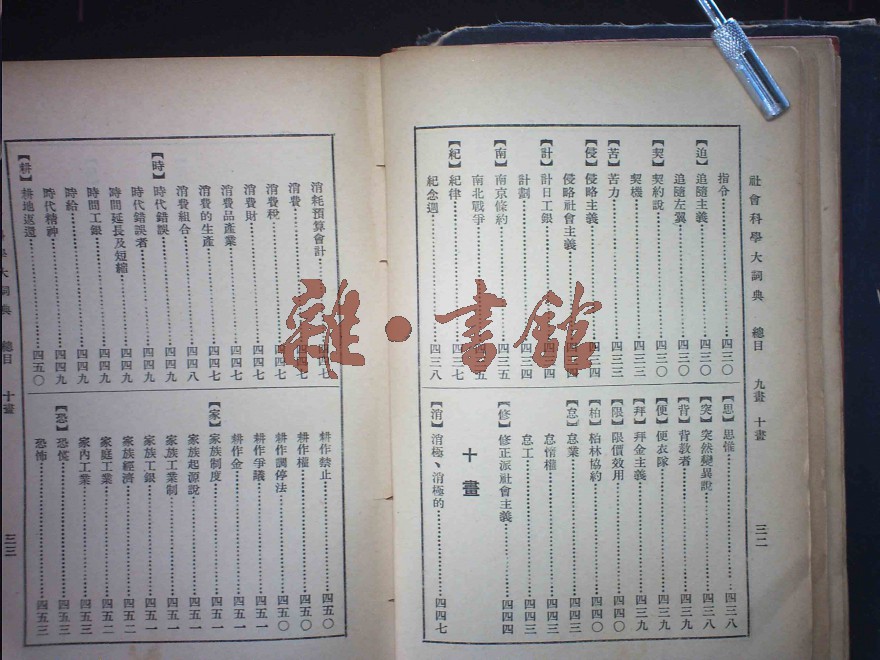 社會科學大詞典 總目 九畫 十畫 三二
指令…四三〇
【追】追隨主義…四三〇
追隨左翼…四三〇
【契】契約說…四三〇
契機…四三三
【苦】苦力…四三三
【侵】侵略主義…四三四
侵略社會主義
【計】計日工銀…四三四
計劃…四三四
【南】南京條約…四三五
南北戰爭
【紀】紀律…四三七
紀念週…四三八
【思】思惟…四三八
【突】突然變異說…四三八
【背】背教者…四三九
【便】便衣隊…四三九
【拜】拜金主義…四三九
【限】限價效用…四四〇
【柏】柏林協約…四四〇
【怠】怠業…四四三
怠惰權…四四三
怠工…四四三
【修】修正派社會主義…四四四
十畫
【消】消極、消極的…四四七
消耗預算會計
消費…四四七
消費稅…四四七
消費財…四四七
消費品產業…四四七
消費的生產…四四七
消費組合…四四八
【時】時代錯誤…四四九
時代錯誤者…四四九
時間延長及短縮…四四九
時間工銀…四四九
時給…四四九
時代精神…四四九
【耕】耕地返還…四五〇
耕作禁止…四五〇
耕作權…四五〇
耕作調停法…四五〇
耕作爭議…四五一
耕作金…四五一
【家】家族制度…四五一
家族起源說…四五一
家族工業制…四五一
家族工銀…四五一
家族經濟…四五二
家庭工業…四五二
家內工業…四五三
【恐】恐慌…四五三
恐怖…四五三
學大詞典 總目 十畫 三三
雜·書館